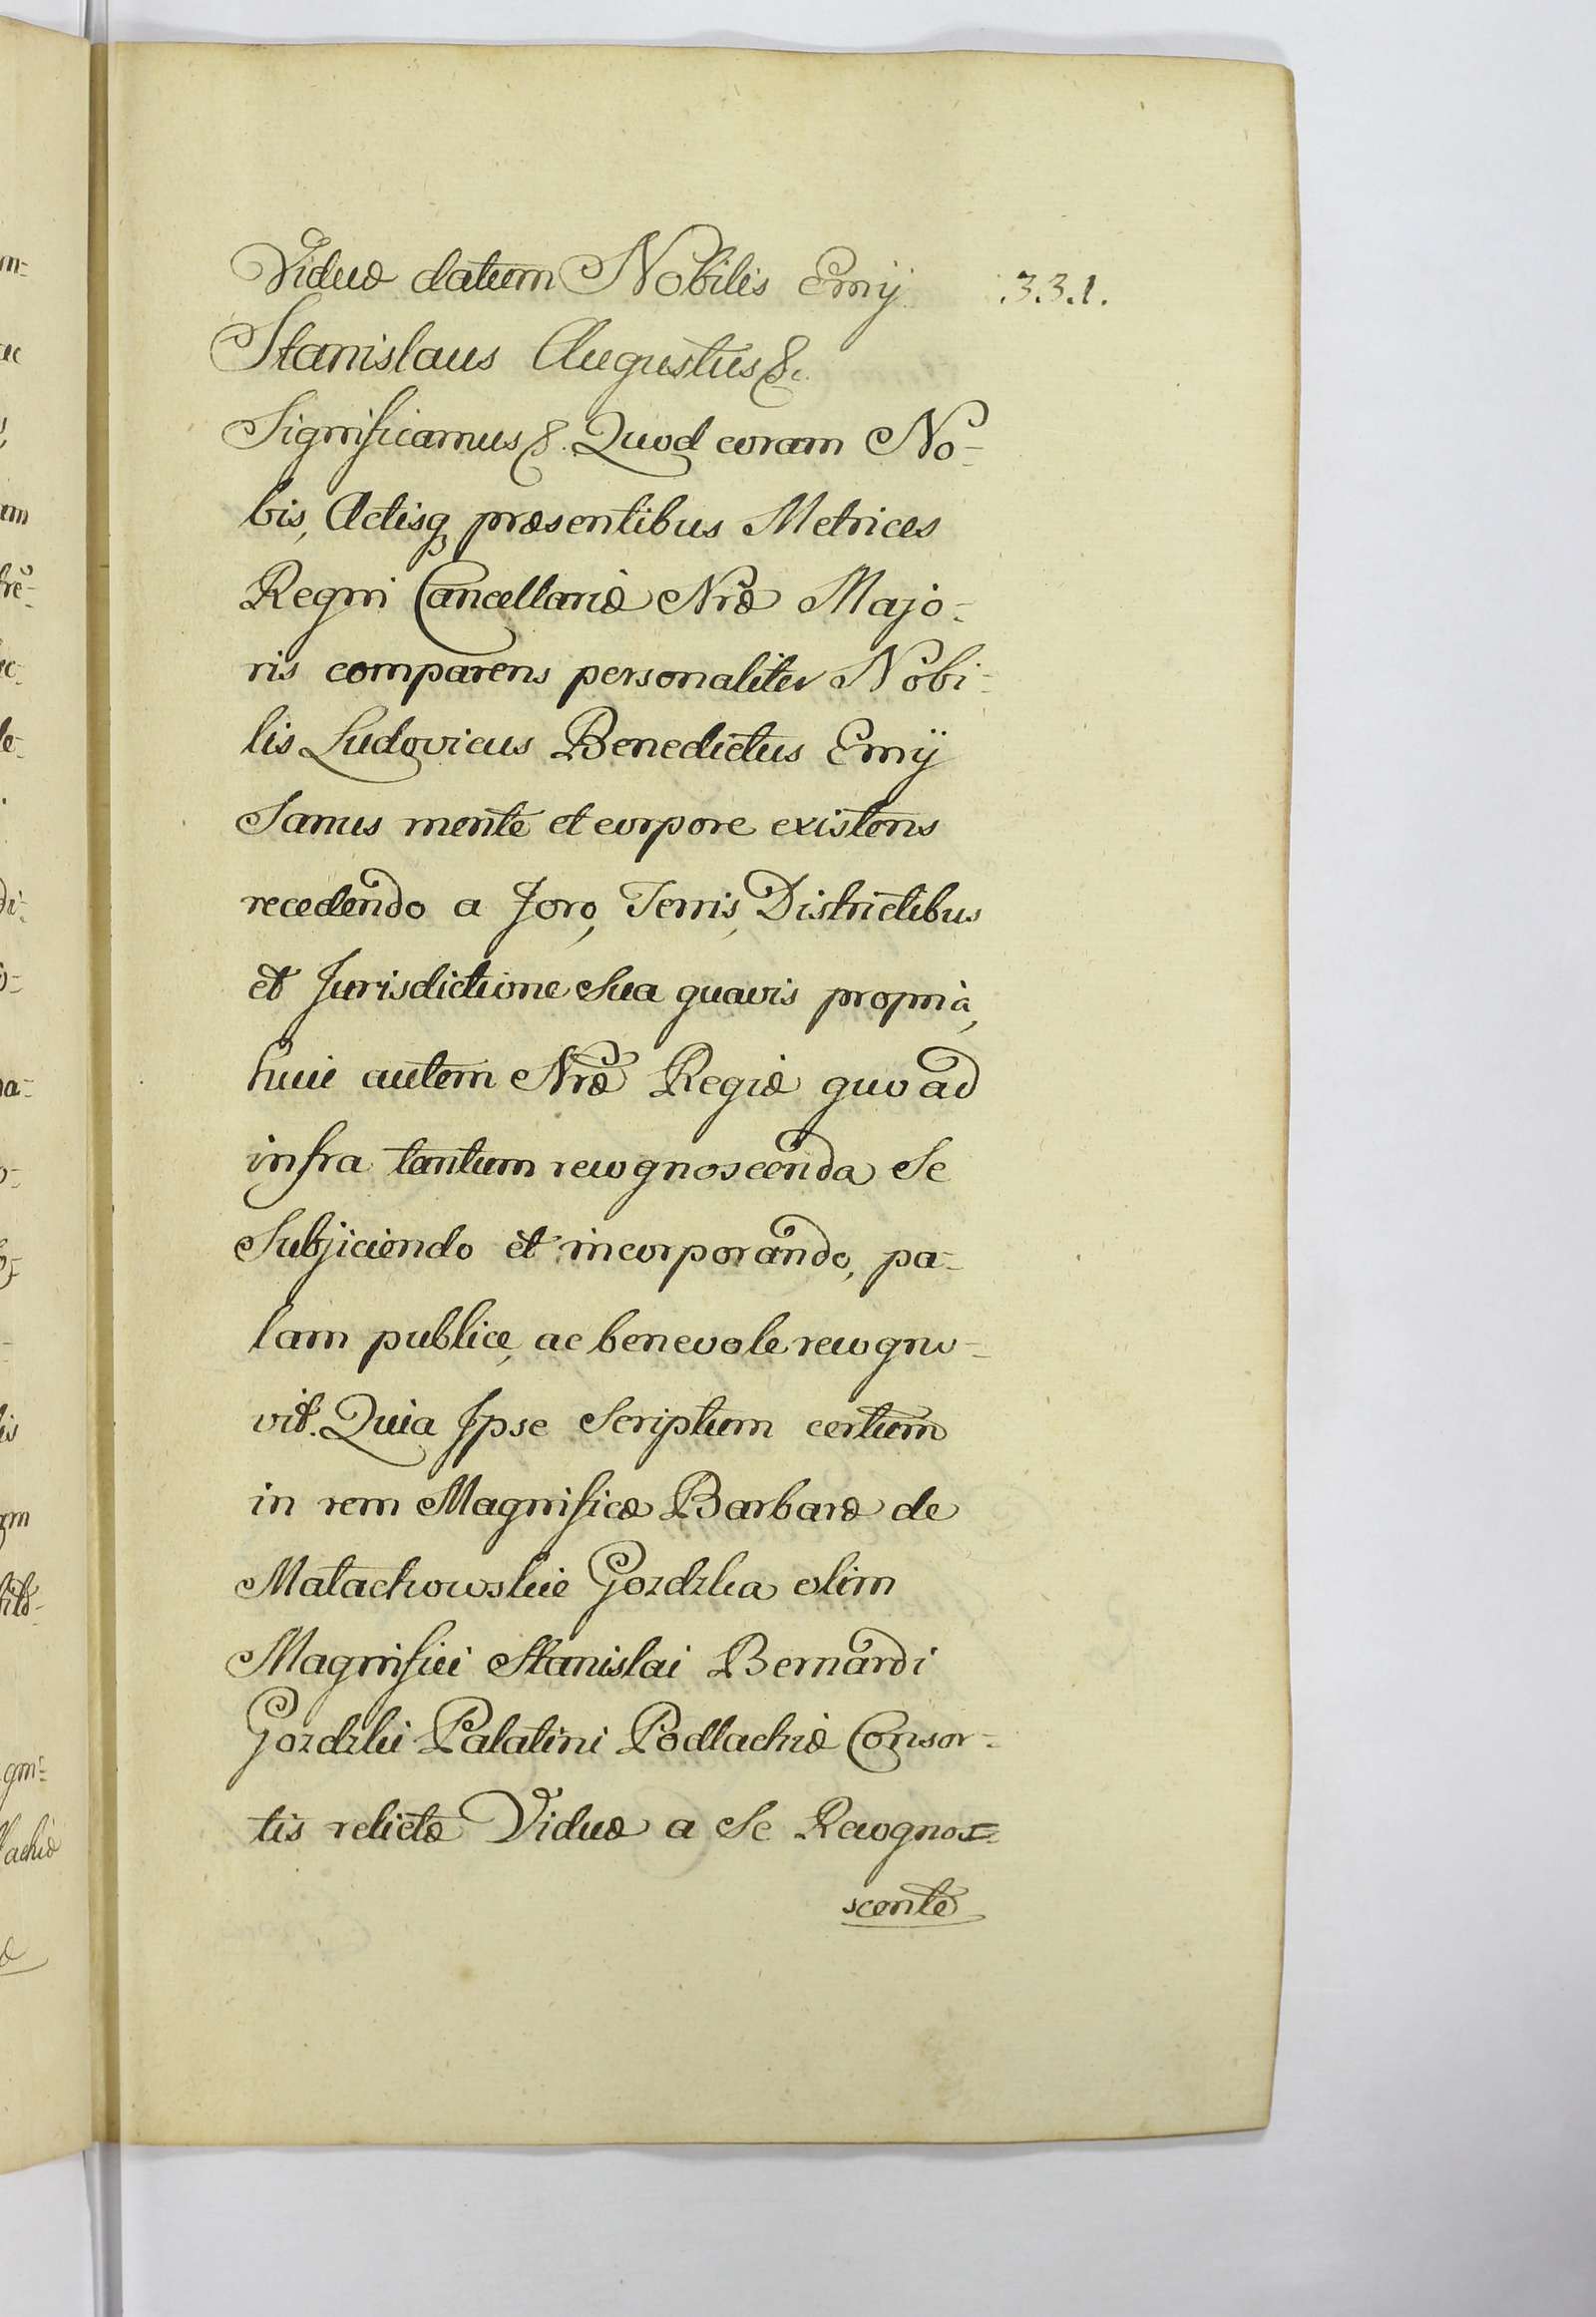 Viduæ datum Nobilis Emÿ
.3.3.1.
Stanislaus Augustus &c.
Significamus &. Quod coram No-
bis, Actisq præsentibus Metrices
Regni Cancellariæ Nræ Majo-
ris comparens personaliter Nobi-
lis Ludovicus Benedictus Emÿ
Sanus mente et corpore existens
recedendo a Foro, Terris, Districtibus
et Jurisdictione Sua quavis propriâ,
huic autem Nræ Regiæ quo ad
infra tantum recognoscenda Se
Subjiciendo et incorporando, pa-
lam publice, ac benevole recogno-
vit. Quia Ipse Scriptum certum
in rem Magnificæ Barbaræ de
Małachowskie Gozdzka olim
Magnifici Stanislai Bernardi
Gozdzki Palatini Podlachiæ Consor-
tis relictæ Viduæ a Se Recognos-
scente